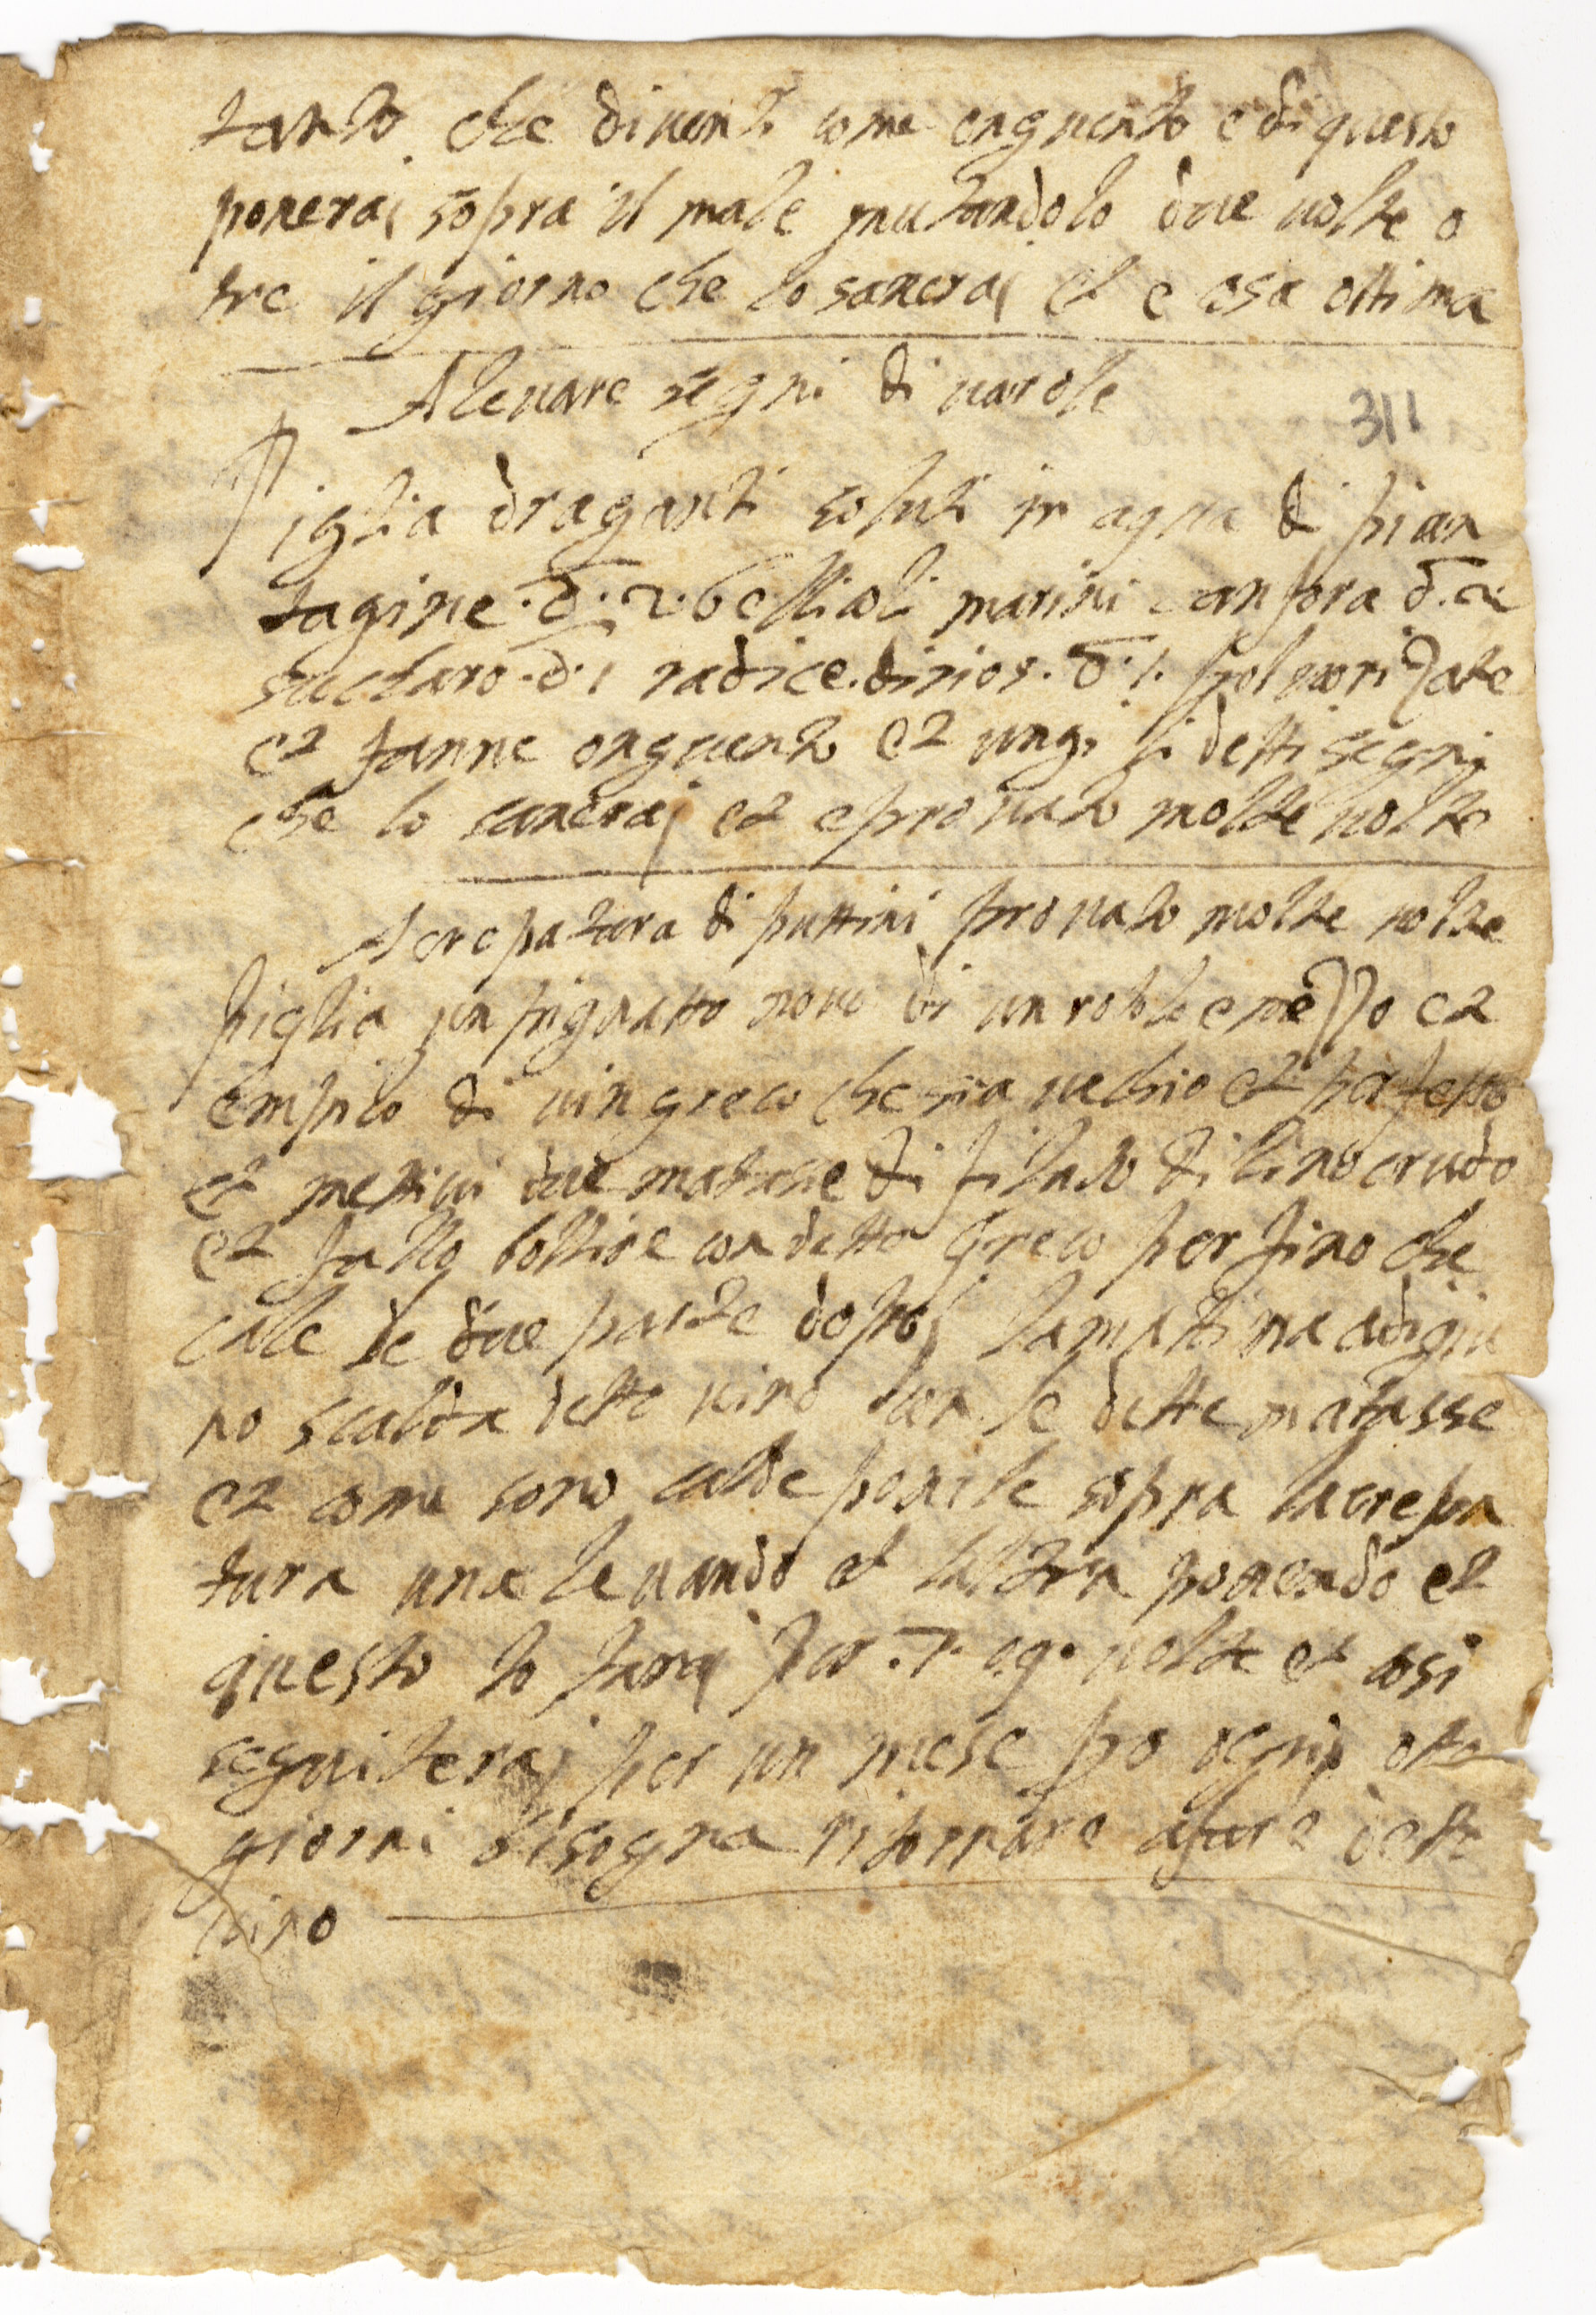 tanto che diventi come onguento e di questo
ponerai sopra il male mutandolo due uolte o
tre il giorno che lo sanerai et e cosa ottima
A leuare segni di uarole
311
Piglia draganti soluti in aqua di pian
tagine
marini canfora
succharo d. 1 radice
d. 1. poluorizate
et fanne onguento et ungi li detti segni
che lo sanerai et e prouato molte uolte
A crepatura di puttini prouato molte uolte
piglia un pignatto nouo di un
e mezzo et
empilo di uin greco che sia uechio et perfetto
et mettiui due matasse di filato di lino crudo
et fallo bollire con detto greco per fino che
cale le due parte dopoi la matina a digiu
no scalda detto uino con le dette matasse
et come sono calde ponile sopra la crepa
tura una leuando et laltra ponendo et
questo lo farai per .7. o 9. uolte et cosi
seguiterai per un mese
ogni otto
giorni bisogna ritornare a fare detto
uino